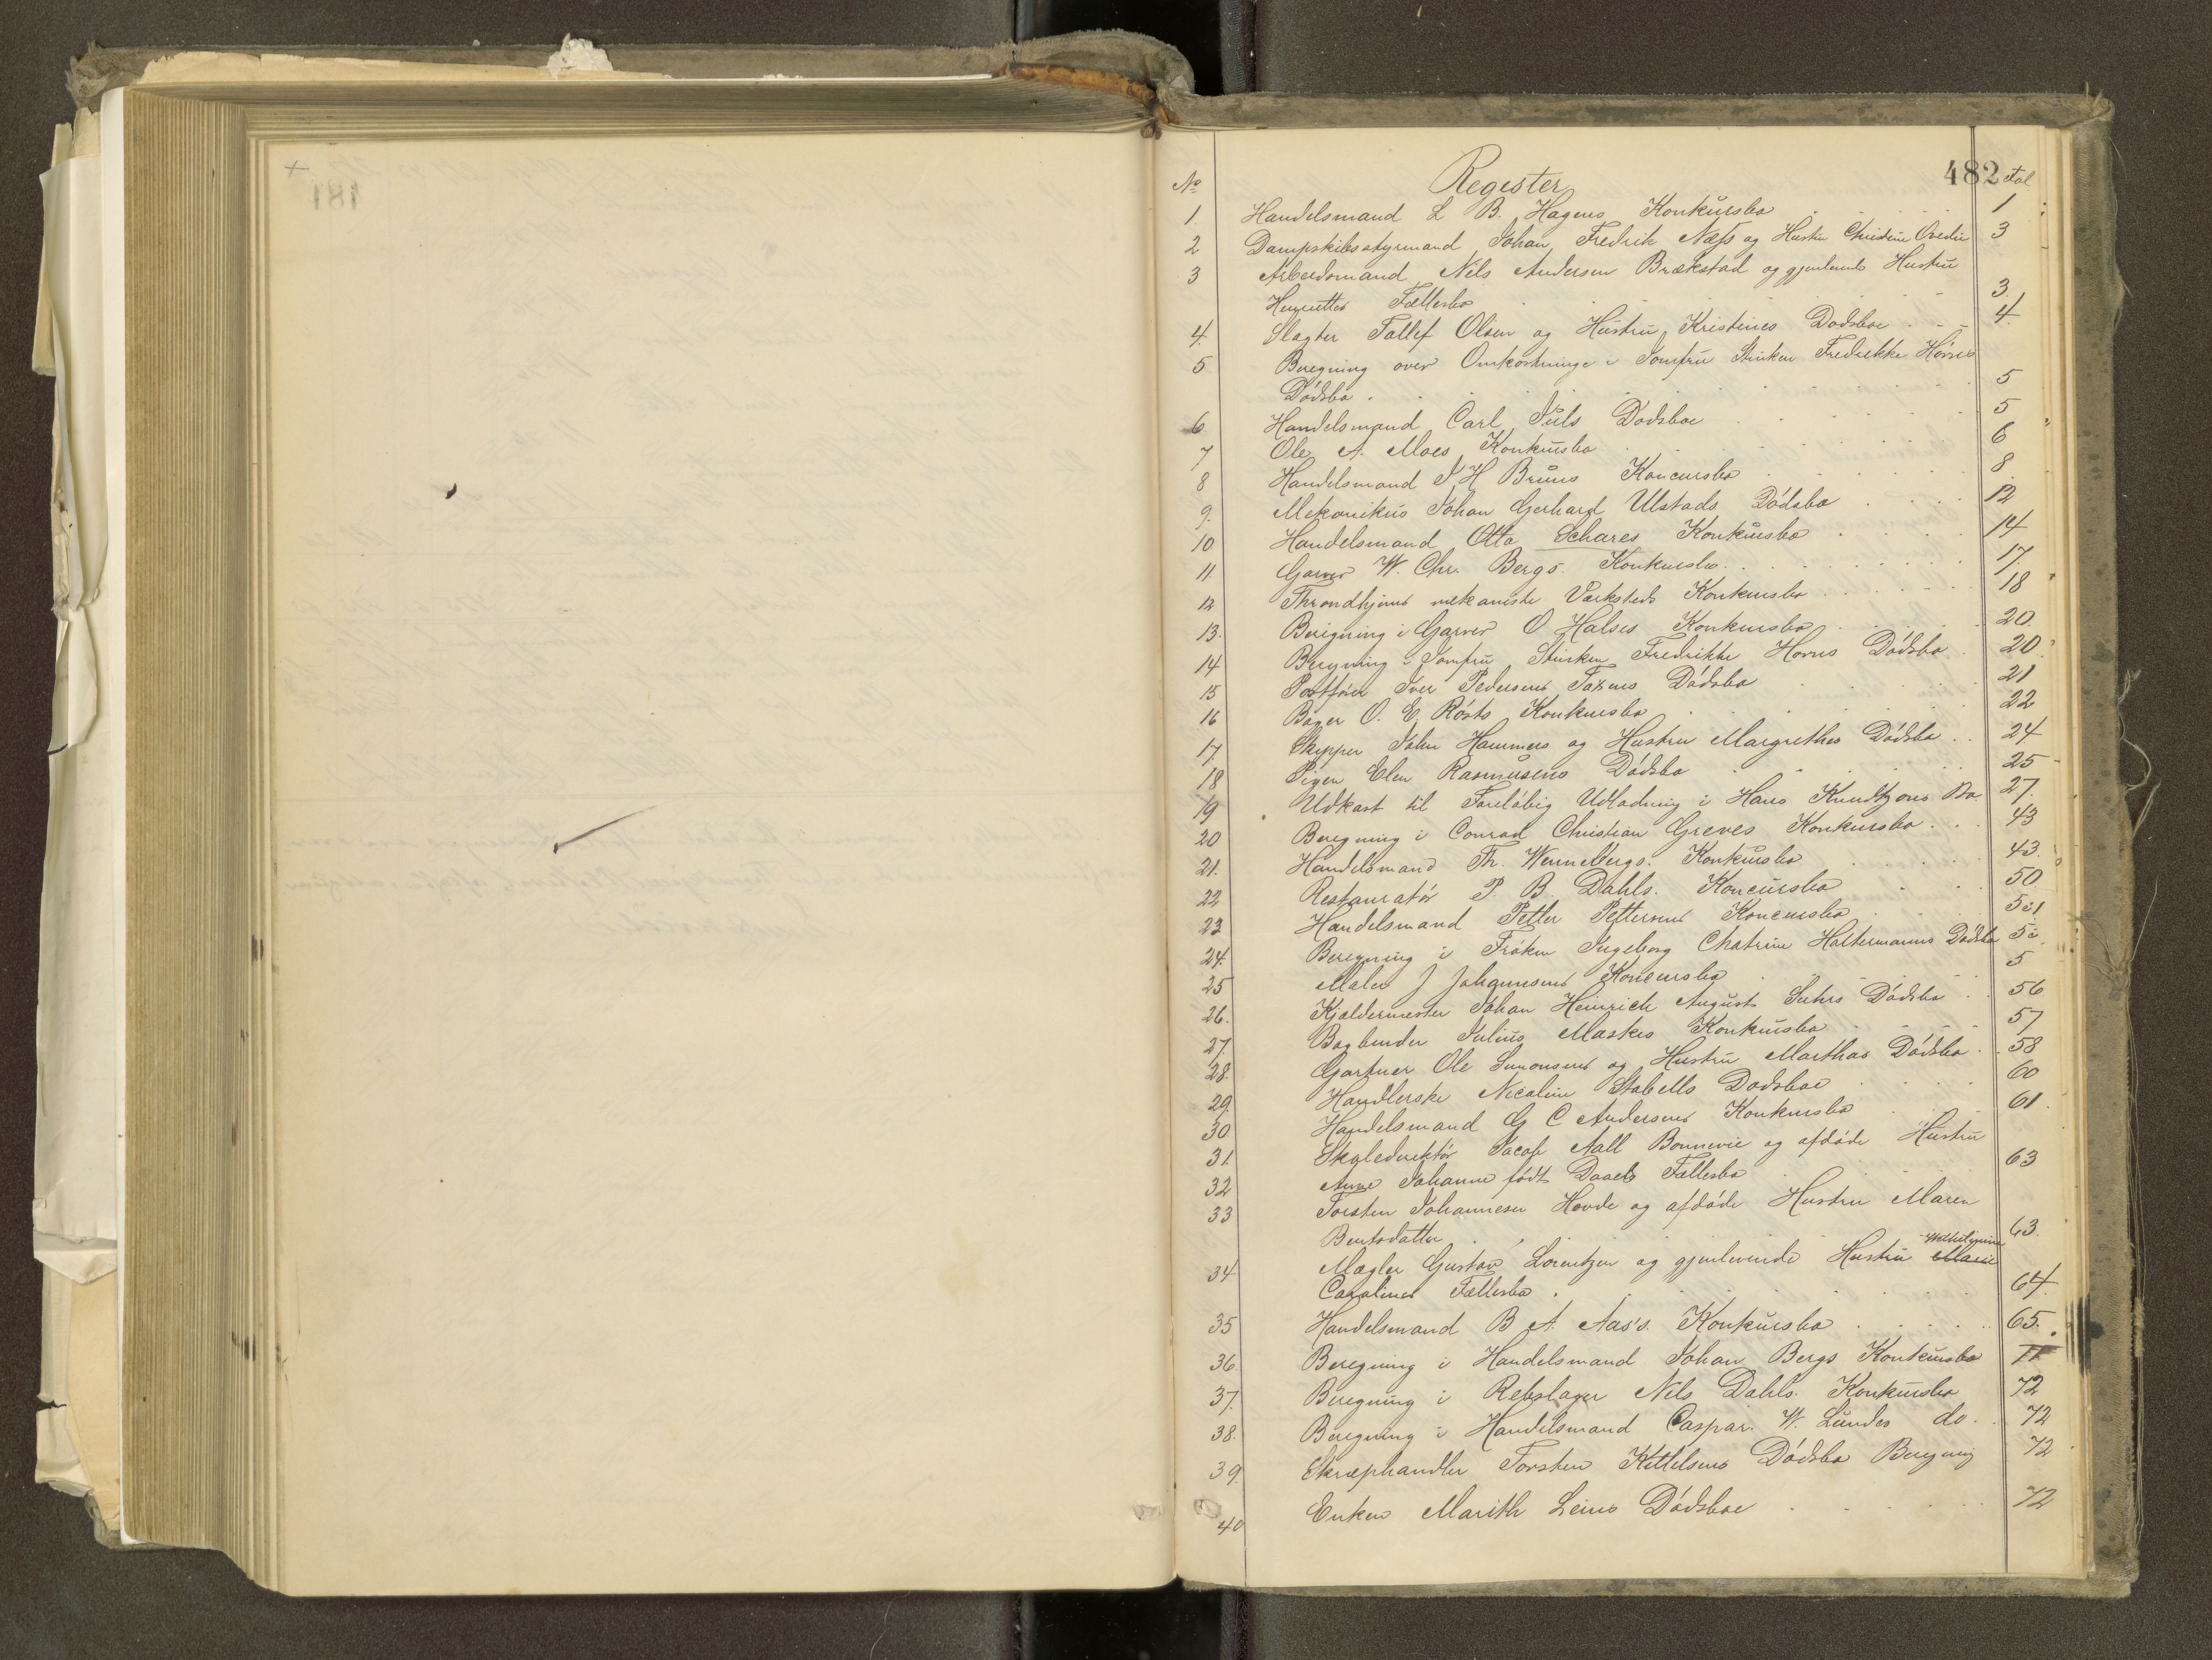 181
482
No Register Fol
1. Handelsmand L B. Hagens Konkursbo 1
2 Dampskibsstyrmand Johan Fredrik Næss og Hustru Christine 3
3 Arbeidsmand Nils Andersen Brækstad og gjenlevende Hustru
Henriettes Fællesbo 3.
4. Slagter Tollef Olsen og Hustru Kristines Dødsboe 4.
5 Beregning over Omkostninge i Jomfru Stinken Fredrikke Hornes
Dødsbo 5
6. Handelsmand Carl Juls Dødsboe 5
7 Ole A. Moes Konkursbo 6
8 Handelsmand J H Bruns Koncursbo 8
9. Mekanikus Johan Gerhard Ulstads Dødsbo 12
10 Handelsmand Otto Schares Konkursbo 14
11. Garver W. Chr. Bergs. Konkursbo 17.
12 Throndhjems mekaniske Værksteds Konkursbo 18
13. Beregning i Garver O Halses Konkursbo 20.
14 Beregning i Jomfru Stinken Fredrikke Hornes Dødsbo 20
15 Postfører Iver Pedersens Dødsbo 21
16 Bager O. E. Røsts Konkursbo 22
17. Skipper John Hammers og Hustru Margrethes Dødsbo 24
18 Pigen Elen Rasmusens Dødsbo 25
19 Udkast til Foreløbig Udlodning i Hans Knudtzons Bo 27.
20 Beregning i Conrad Christian Greves Konkursbo 43
21. Handelsmand Th. Wennebergs. Konkursbo 43.
22 Restauratør P. B. Dahls. Koncursbo 50
23 Handelsmand Petter Pettersens Koncursbo
24. Beregning i Frøken Ingeborg Chatrine Haltermanns Dødsbo
25 Maler J Johannsens Koncursbo 5
26. Kjældermester Johan Heinrich August Suhrs Dødsbo 56
27. Bogbinder Julius Maskes Konkursbo 57
28. Gartner Ole Simonsens og Hustru Marthas Dødsbo 58
29. Handlerske Nicoline Stabells Dødsboe 60
30. Handelsmand G C Andersens Konkursbo 61
31. Skoledirektør Jacob Aall Bonnevie og afdøde Hustru
32 Anne Johanne født Daaes Fællesbo 63
33 Torsten Johannesen Hovde og afdøde Hustru Maren
Bentsdatter 63.
34 Mægler Gustav Lorentzen og gjenlevende Hustru Marie
Carolines Fællesbo 64.
35 Handelsmand B A. Aas's. Konkursbo 65.
36. Beregning i Handelsmand Johan Bergs Konkursbo 71
37. Beregning i Rebslager Nils Dahls. Konkursbo 72
38. Beregning i Handelsmand Caspar. W. Lundes do. 72
39. Skræphandler Torsten Kittelsens Dødsbo Beregning 72
40 Enken Marith Leins Dødsboe 72